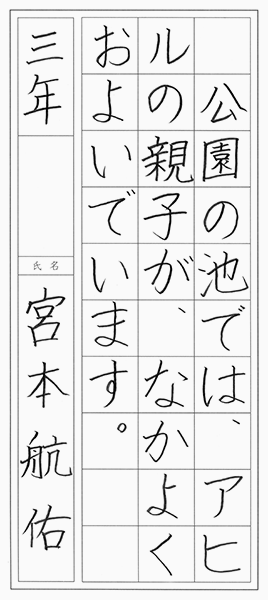 公園の池では、アヒ
ルの親子が、なかよく
およいでいます。
三年
氏名
宮本航佑